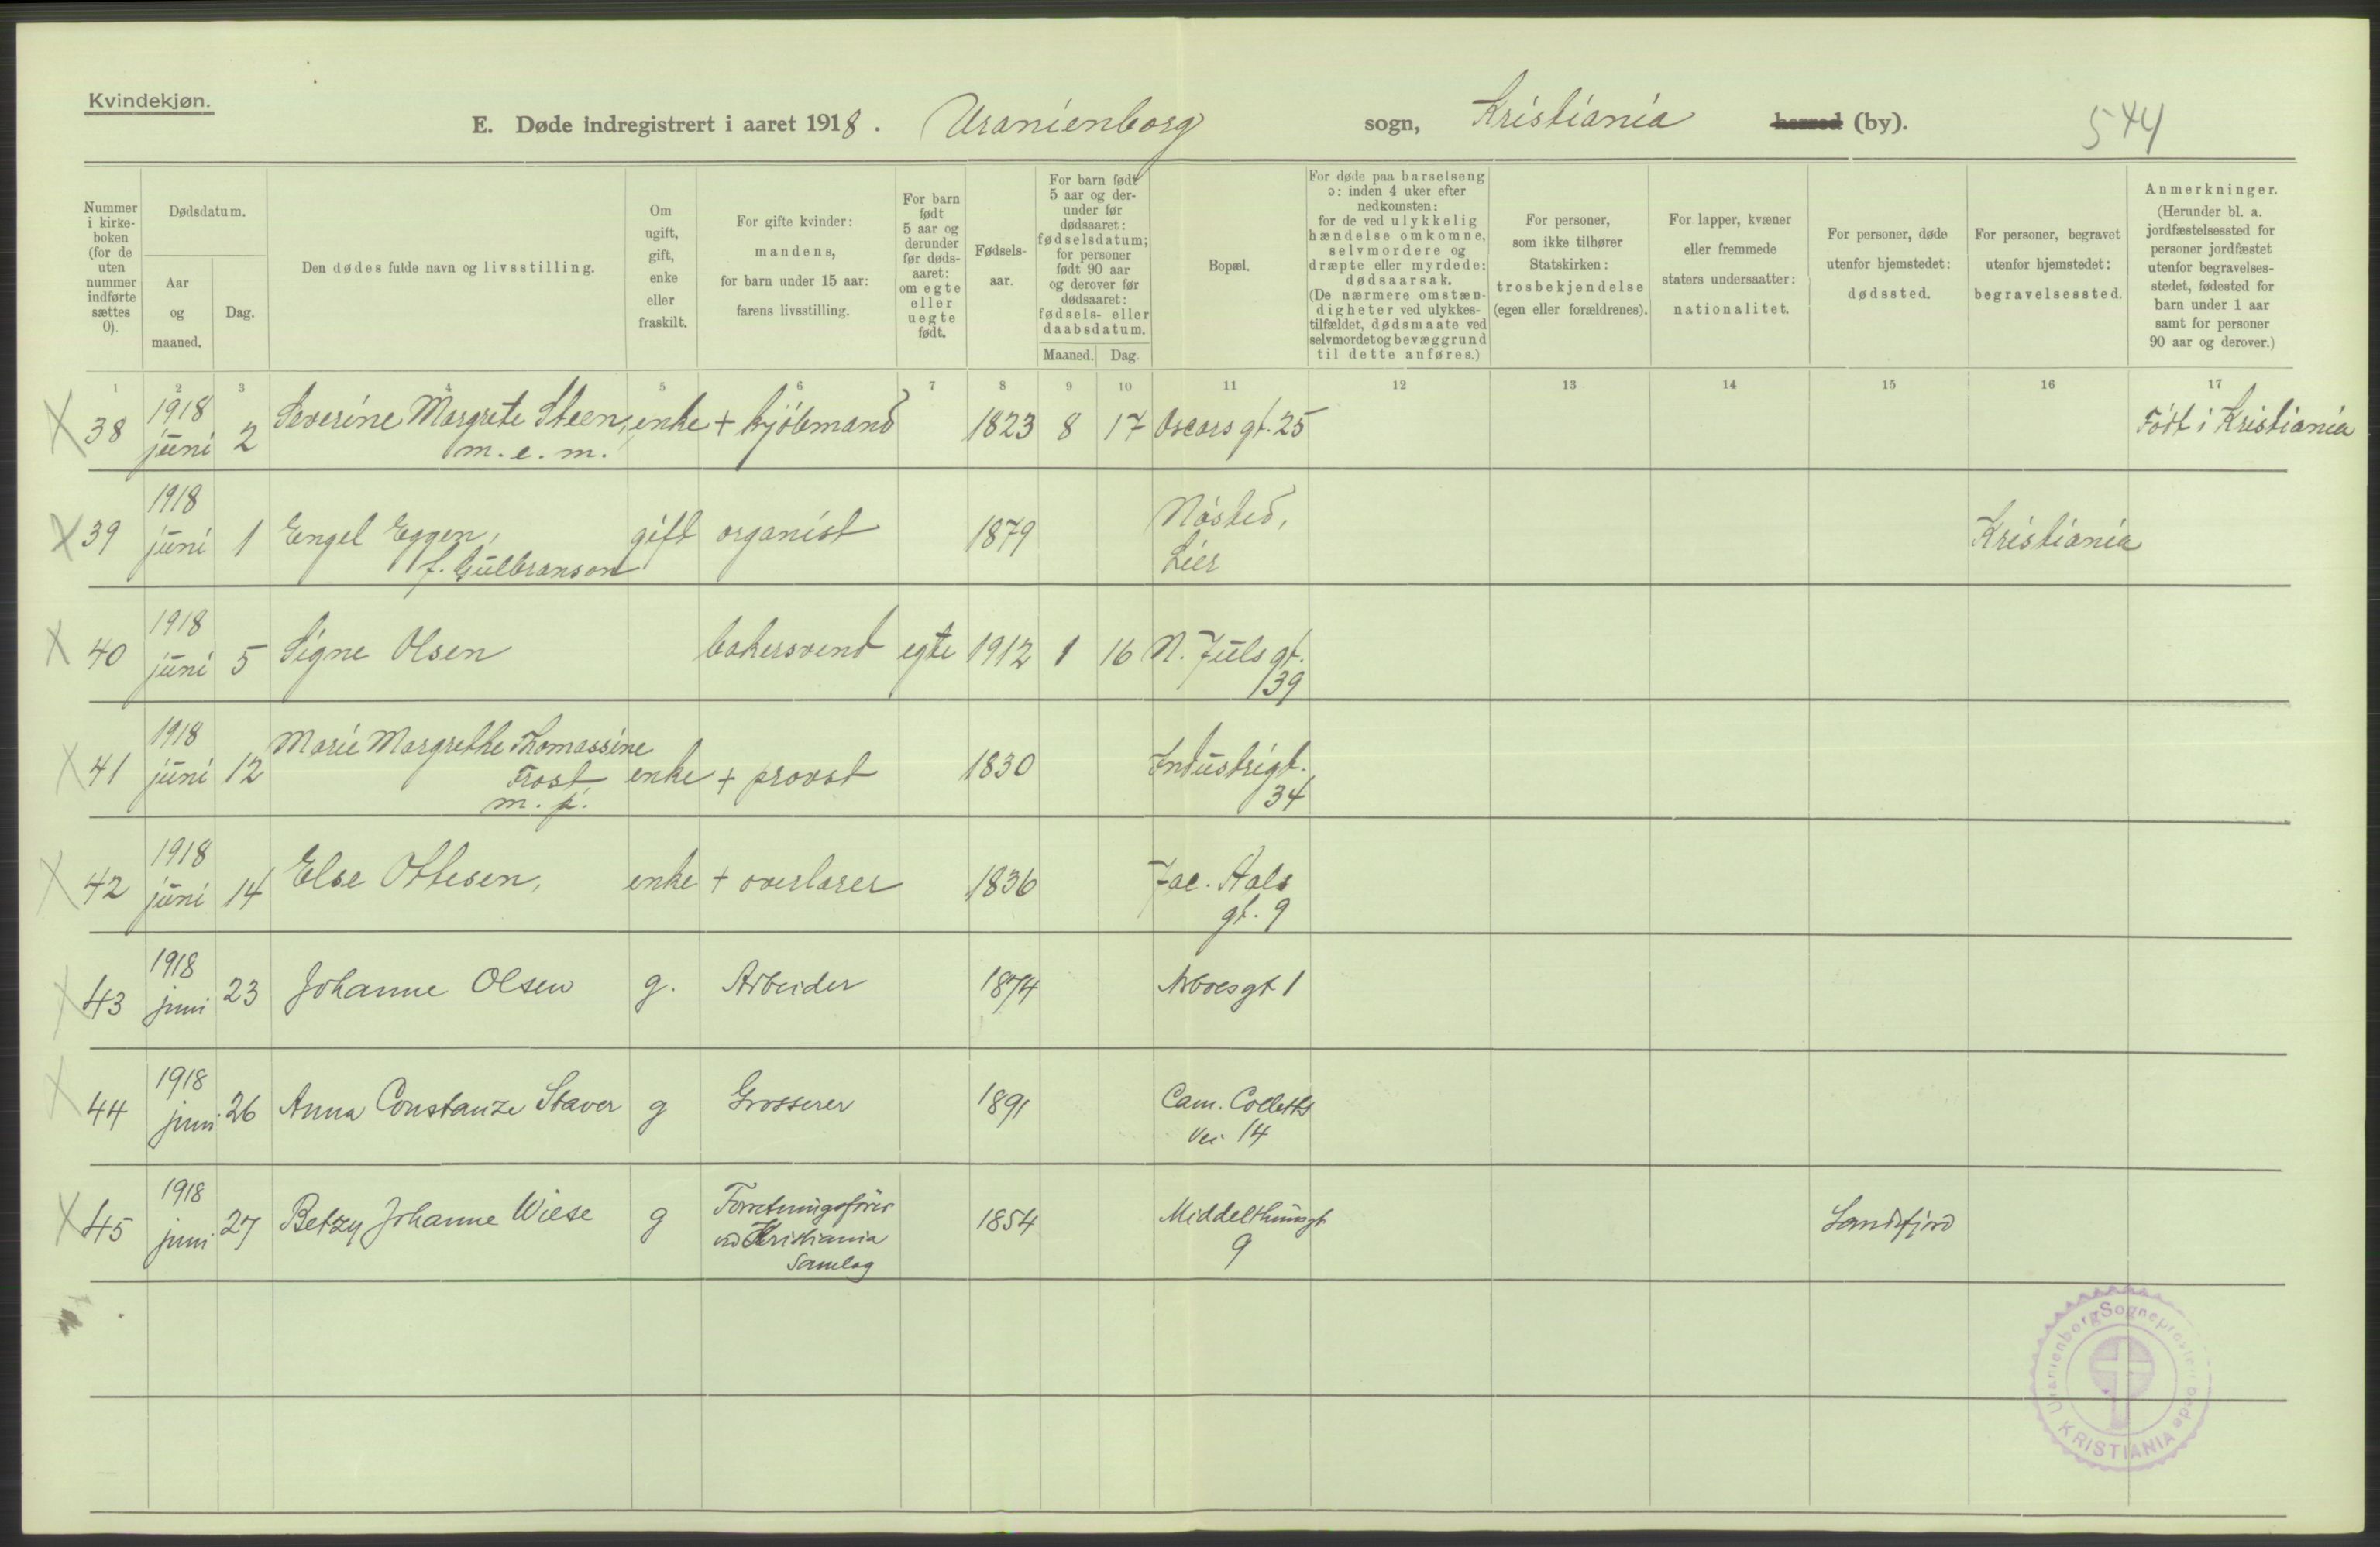 Kvindekjøn.
E. Døde indregistrert i aaret 1918. Uranienborg sogn, Kristiania herred (by). 544
Nummer i kirke-boken (for de uten nummer indførte sættes 0).
Dødsdatum.
Aar og maaned.
Dag.
Den dødes fulde navn og livsstilling.
Om ugift, gift, enke eller fraskilt.
For gifte kvinder: mandens, for barn under 15 aar: farens livsstilling.
For barn født 5 aar og derunder før døds-aaret: om egte eller uegte født.
Fødsels-aar.
For barn født 5 aar og der-under før dødsaaret: fødselsdatum; for personer født 90 aar og derover før dødsaaret: fødsels- eller daabsdatum.
Maaned. Dag.
Bopæl.
For døde paa barselseng ɔ: inden 4 uker efter nedkomsten: for de ved ulykkelig hændelse omkomne, selvmordere og dræpte eller myrdede: dødsaarsak. (De nærmere omstæn-digheter ved ulykkes-tilfældet, dødsmaate ved selvmordet og bevæggrund til dette anføres.)
For personer, som ikke tilhører Statskirken: trosbekjendelse (egen eller forældrenes).
For lapper, kvæner eller fremmede staters undersaatter: nationalitet.
For personer, døde utenfor hjemstedet: dødssted.
For personer, begravet utenfor hjemstedet: begravelsessted.
Anmerkninger. (Herunder bl. a. jordfæstelsessted for personer jordfæstet utenfor begravelses-stedet, fødested for barn under 1 aar samt for personer 90 aar og derover.)
1 2 3 4 5 6 7 8 9 10 11 12 13 14 15 16 17
X 38 1918 juni 2 Severine Margrete Steen, m. e. m. enke + kjöbmand 1823 8 17 Oscars gt. 25 Född i Kristiania
X 39 1918 juni 1 Engel Eggen, f. Gulbranson gift organist 1879 Nösted, Lier Kristiania
X 40 1918 juni 5 Signe Olsen bakersvend egte 1912 1 16 N. Juls gt. 39
X 41 1918 juni 12 Marie Margrethe Thomassine Frost m. p. enke + provst 1830 Industrigt. 34
X 42 1918 juni 14 Else Ottesen, enke + overlærer 1836 Jac. Aals gt. 9
X 43 1918 juni 23 Johanne Olsen g. Arbeider 1874 Arboesgt 1
X 44 1918 juni 26 Anna Constanze Staver g Grosserer 1891 Cam. Colletts Vei 14
X 45 1918 juni 27 Betzy Johanne Wiese g Forretningsförer ved Kristiania Samlag 1854 Middelthunsgt 9 Sandefjord
Uranienborg Sogneprestembede KRISTIANIA